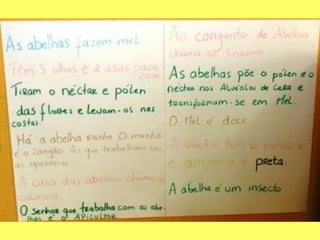 As abelhas fazem mel
Têm 5 olhos e 2 asas para
voar
Tiram o néctar e pólen
das flores e levam-os nas
costas.
Há a abelha rainha O macho
é o Zangão. As que trabalham são
as operárias
A casa das abelhas chama-se
O senhor que trabalha com as abe-
lhas é o Apicultor
Ao conjunto de Abelhas
chama-se Enxame
As abelhas põe o pólen e o
néctar nos Alvéolos de Cera e
transformam-se em Mel.
O Mel é doce
A abelha tem 6 patas e
é amarela e preta.
A abelha é um insecto